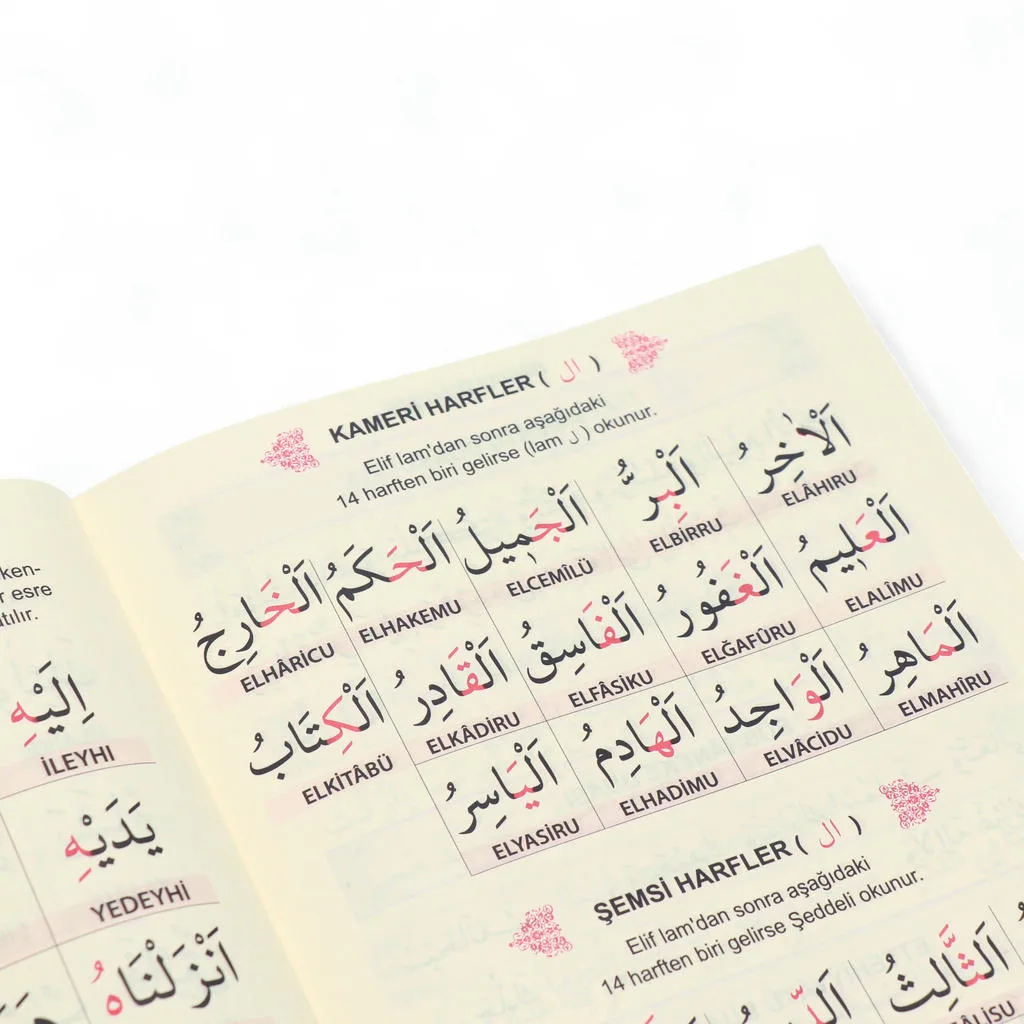 ken-
r esre
tılır.
اِلَيْهِ
İLEYHI
يَدَيْهِ
YEDEYHİ
اَنْزَلْنَاهُ
KAMERİ HARFLER ( ال )
Elif lam'dan sonra aşağıdaki
14 harften biri gelirse (lam ل ) okunur.
اَلْاٰخِرُ اَلْبِرُّ اَلْجَمِيلُ اَلْحَكَمُ اَلْخَارِجُ
ELÂHIRU ELBİRRU ELCEMİLÜ ELHAKEMU ELHÂRİCU
اَلْعَلِيمُ اَلْغَفُورُ اَلْفَاسِقُ اَلْقَادِرُ اَلْكِتَابُ
ELALÎMU ELĞAFÛRU ELFÂSIKU ELKÂDİRU ELKİTÂBÜ
اَلْمَاهِرُ اَلْوَاجِدُ اَلْهَادِمُ اَلْيَاسِرُ
ELMAHÎRU ELVÂCİDU ELHADİMU ELYASİRU
ŞEMSİ HARFLER ( ال )
Elif lam'dan sonra aşağıdaki
14 harften biri gelirse Şeddeli okunur.
اَلثَّالِثُ
ÂLİSU